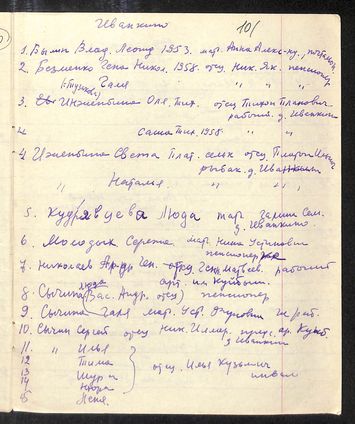 Иванкино
10/
1. Былин Влад. Леонид 1953. мат. Анна Алекс-ну,
2. Безменко Гена Никол. 1958. отец Ник. Як. пенсионер
Галя " " "
3. Инженбина Оля Тих. отец Тихон Платович.
рабочий д. Иванкин
4 Саша Тих. 1958 " "
4 Инженбина Света Плат. отец Платон
рыбак д. Иванкин
" Наталья " "
5. Кудрявцева Люда мат. Галина Сем.
д. Иванкино
6. Молодых Сережа мат. Нина Устинович
пенсионер
7. Николаев Андр. Ген. отец Ген. Матвеев. рабочий
арт. им Куйбыш.
8. Сычина Люда (Вас. Андр. отец) пенсионер
9. Сычина Галя мат.
10. Сычин Сергей отец Ник. Иллар.
д Иванкин
11. " Илья
12 Тима
13 Шура
14 Нюра
15 Леня.
отец. Илья Кузьмич
инвал